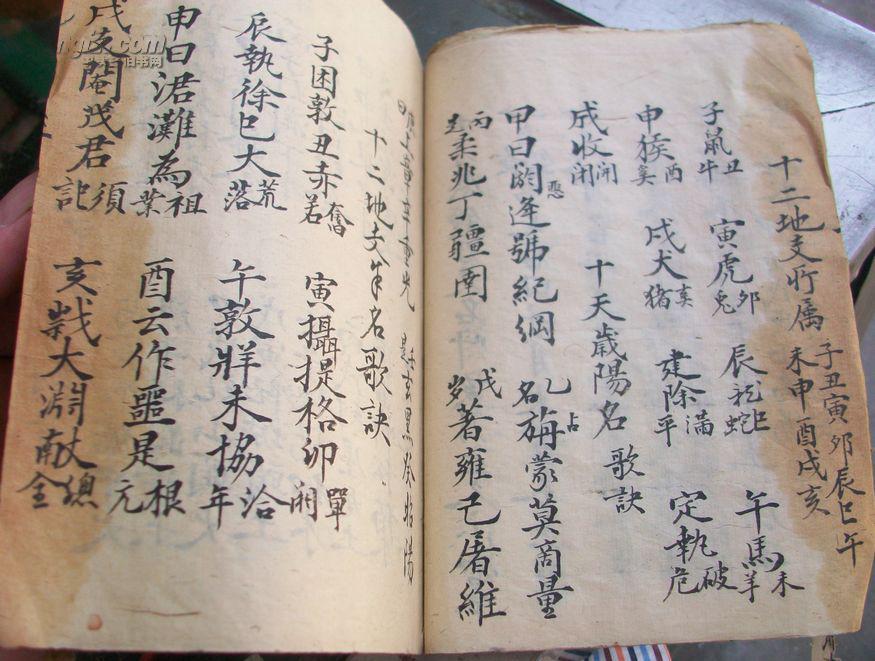 十二地支所属 子丑寅卯辰巳午未申酉戌亥
子鼠丑牛 寅虎卯兔 辰龙巳蛇 午馬未羊
申猴酉奚 戌犬亥猪 建除滿平 定執破危
成收開闭 十天歲陽名 歌訣
甲曰閼恶逢號紀綱 乙占名旃蒙莫商量
丙是柔兆丁疆圉 戊岁著雍己屠維
曰上章辛重光 壬是玄黑癸昭陽
十二地支年名歌訣
子困敦丑赤奮若 寅攝提格卯單閼
辰執徐巳大荒落 午敦牂未協洽年
申曰涒灘為祖業 酉云作噩是根元
戌閹茂君須記 亥歲大淵献總全